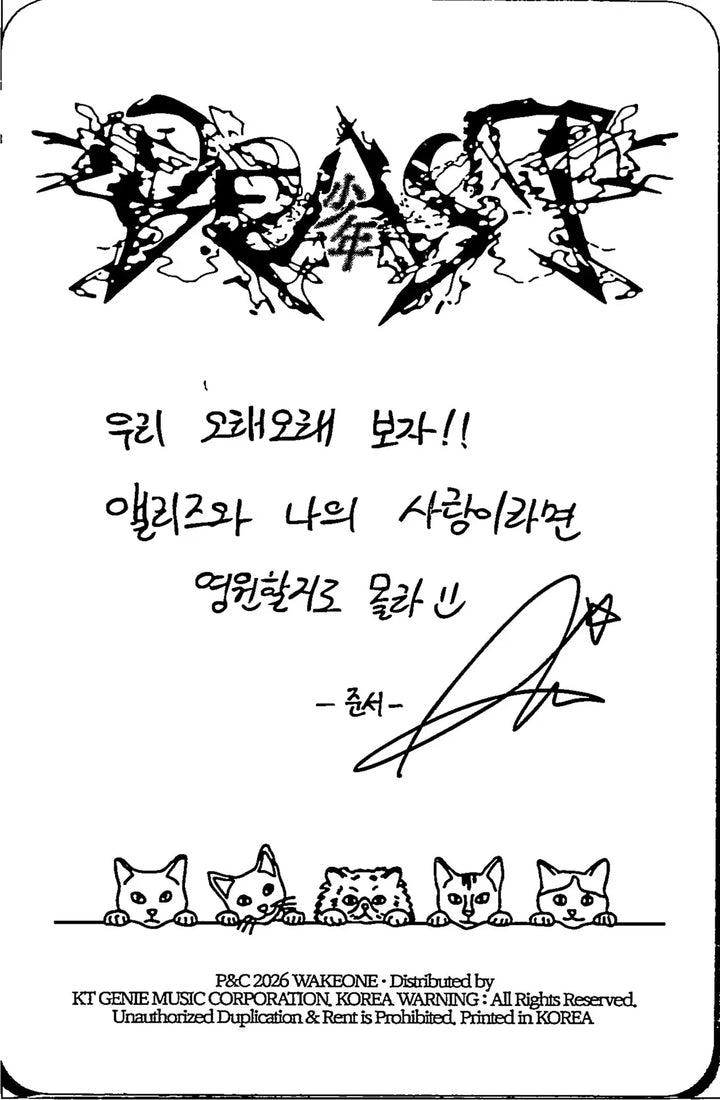 BEAST
少年
우리 오래오래 보자!!
앨리즈와 나의 사랑이라면
영원할지도 몰라
- 준서 -
P&C 2026 WAKEONE · Distributed by
KT GENIE MUSIC CORPORATION, KOREA WARNING : All Rights Reserved.
Unauthorized Duplication & Rent is Prohibited. Printed in KOREA